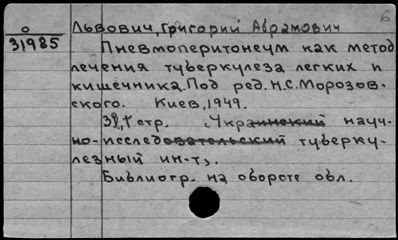 Львович, Григорий Абрамович
О
31985
Пневмоперитонеум как метод
лечения туберкулеза легких и
кишечника. Под ред. Н.С. Морозов-
ского. Киев, 1949.
стр. (Украинский науч-
но-исследовательский туберку-
лезный ин-т).
Библиогр. на обороте обл.